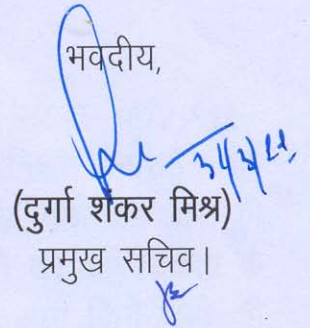 भवदीय,
(दुर्गा शंकर मिश्र)
प्रमुख सचिव।